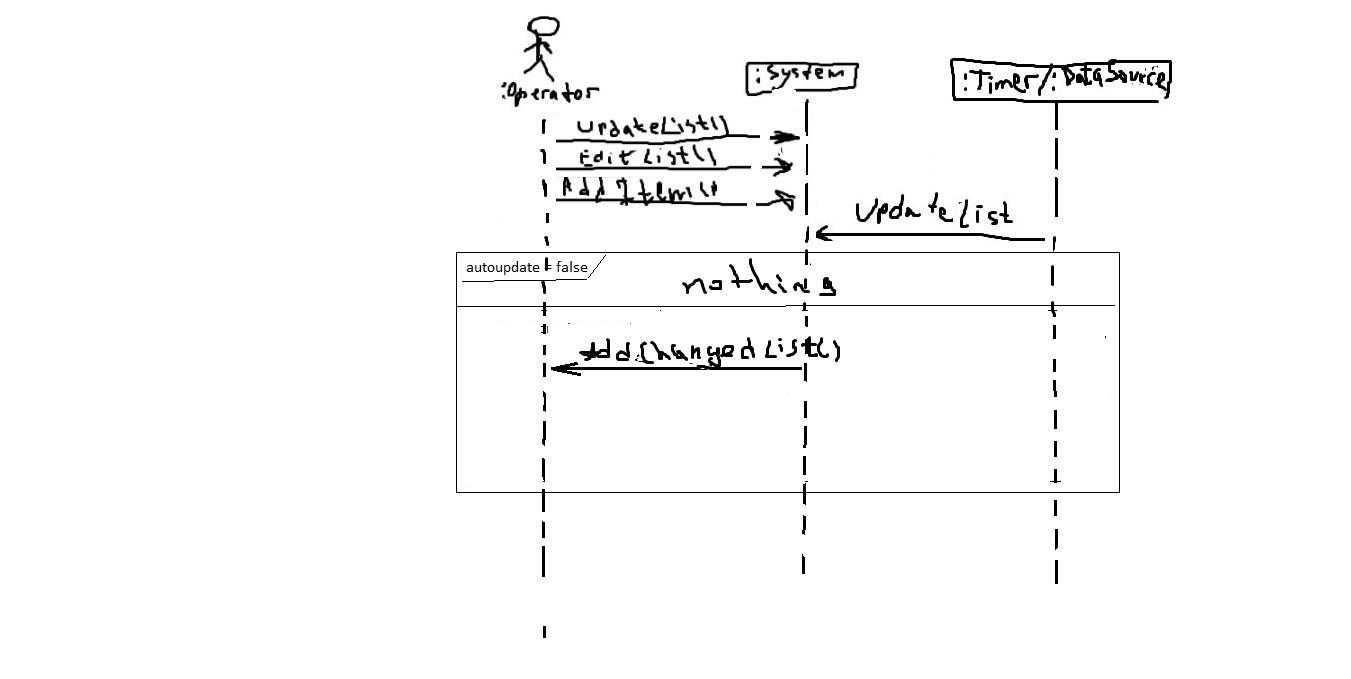 :System
:Timer/:DataSource
:Operator
UpdateList()
Edit List()
Add Item()
UpdateList
autoupdate = false
nothing
AddChangedList()